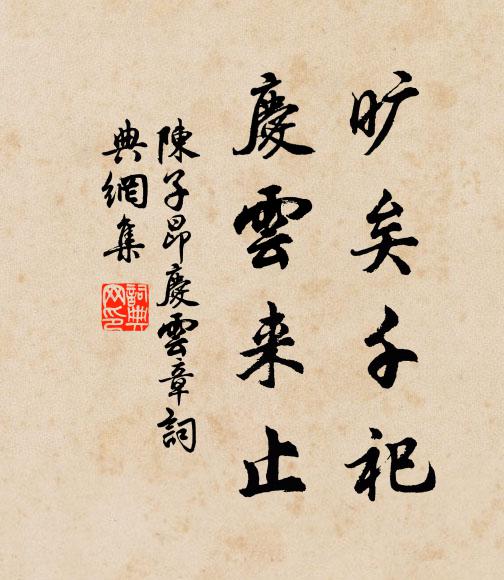 旷矣千祀
慶雲来止
陳子昂慶雲章詞
典網集
詞典
网印